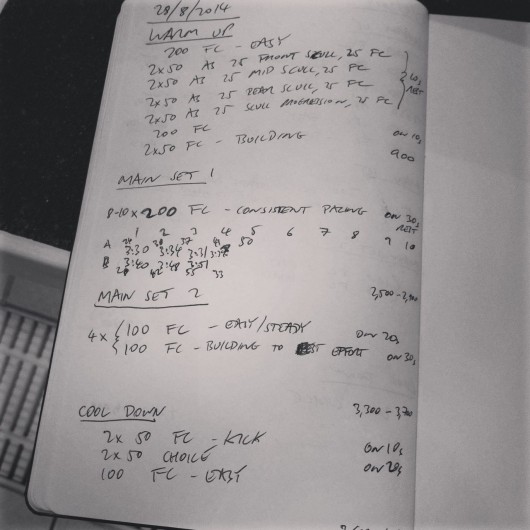 28/8/2014
WARM UP
200 FC - EASY
2x50 AS 25 FRONT SCULL, 25 FC
2x50 AS 25 MID SCULL, 25 FC
2x50 AS 25 REAR SCULL, 25 FC
2x50 AS 25 SCULL PROGRESSION, 25 FC
10s REST
200 FC
2x50 FC - BUILDING ON 10s
900
MAIN SET 1
8-10 x 200 FC - CONSISTENT PACING ON 30s REST
1 2 3 4 5 6 7 8 9 10
A 3:30 3:34 3:31
B 3:40 3:48 3:51
42 55 33
MAIN SET 2
4x { 100 FC - EASY/STEADY ON 20s
100 FC - BUILDING TO EFFORT ON 30s
COOL DOWN 3,300 - 3,700
2x 50 FC - KICK ON 10s
2x 50 CHOICE ON 20s
100 FC - EASY